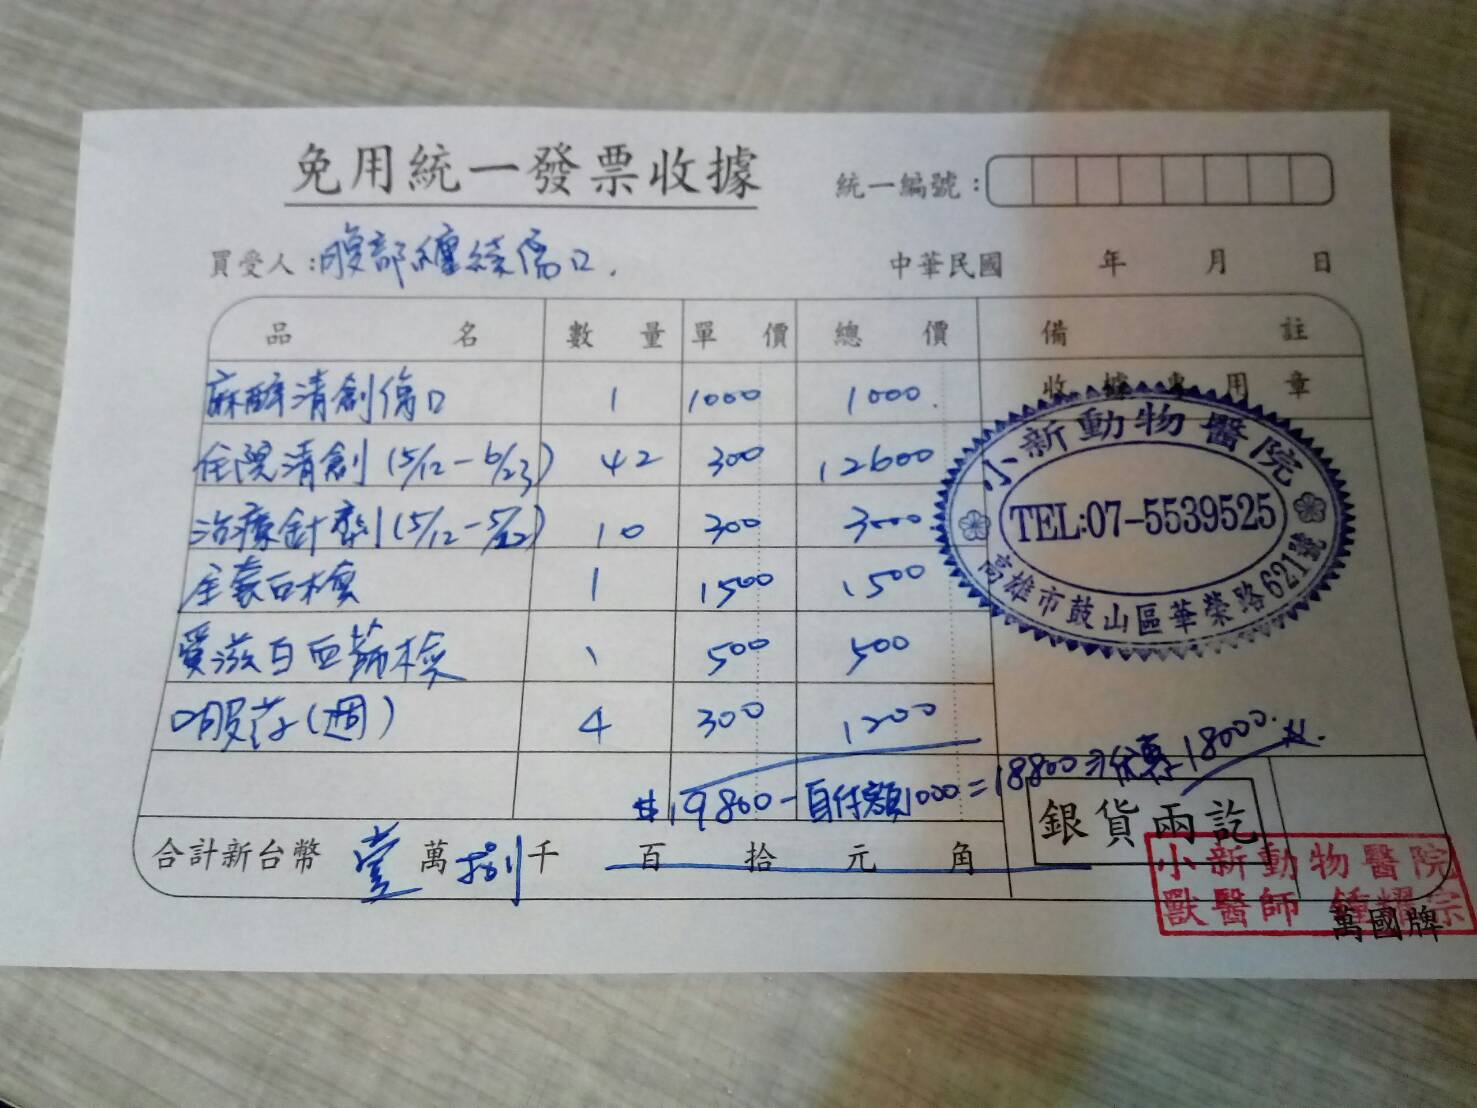 免用統一發票收據
統一編號：
買受人：腹部纏繞傷口.
中華民國 年 月 日
品 名 數 量 單 價 總 價 備 註
收據專用章
麻醉清創傷口 1 1000 1000.
住院清創(5/12-6/23) 42 300 12600
治療針劑(5/12-5/22) 10 300 3000
全套血檢 1 1500 1500
愛滋白血篩檢 1 500 500
口服葯(週) 4 300 1200
#19800-自付額1000=18800 优惠18000.
小新動物醫院
TEL:07-5539525
高雄市鼓山區華榮路621號
銀貨兩訖
合計新台幣 壹 萬 捌 千 百 拾 元 角
小新動物醫院
獸醫師 鍾耀宗
萬國牌